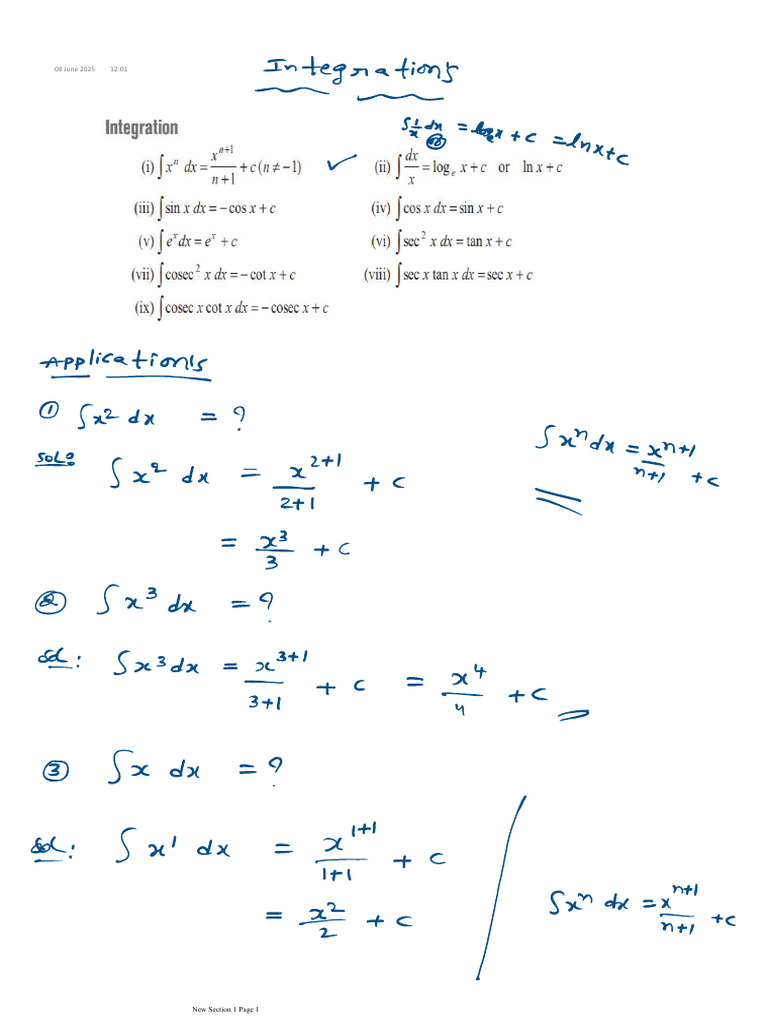 09 June 2025 12:01
Integrations
Integration
∫ 1/x dx = logₑx + c = lnx + c
(i) ∫ xⁿ dx = xⁿ⁺¹/n+1 + c (n ≠ −1) ✓ (ii) ∫ dx/x = logₑ x + c or ln x + c
(iii) ∫ sin x dx = − cos x + c (iv) ∫ cos x dx = sin x + c
(v) ∫ eˣ dx = eˣ + c (vi) ∫ sec² x dx = tan x + c
(vii) ∫ cosec² x dx = − cot x + c (viii) ∫ sec x tan x dx = sec x + c
(ix) ∫ cosec x cot x dx = − cosec x + c
Applications
① ∫ x² dx = ?
Sol: ∫ x² dx = x²⁺¹/2+1 + c
∫ xⁿ dx = xⁿ⁺¹/n+1 + c
= x³/3 + c
② ∫ x³ dx = ?
Sol: ∫ x³ dx = x³⁺¹/3+1 + c = x⁴/4 + c
③ ∫ x dx = ?
Sol: ∫ x¹ dx = x¹⁺¹/1+1 + c
= x²/2 + c
∫ xⁿ dx = xⁿ⁺¹/n+1 + c
New Section 1 Page 1